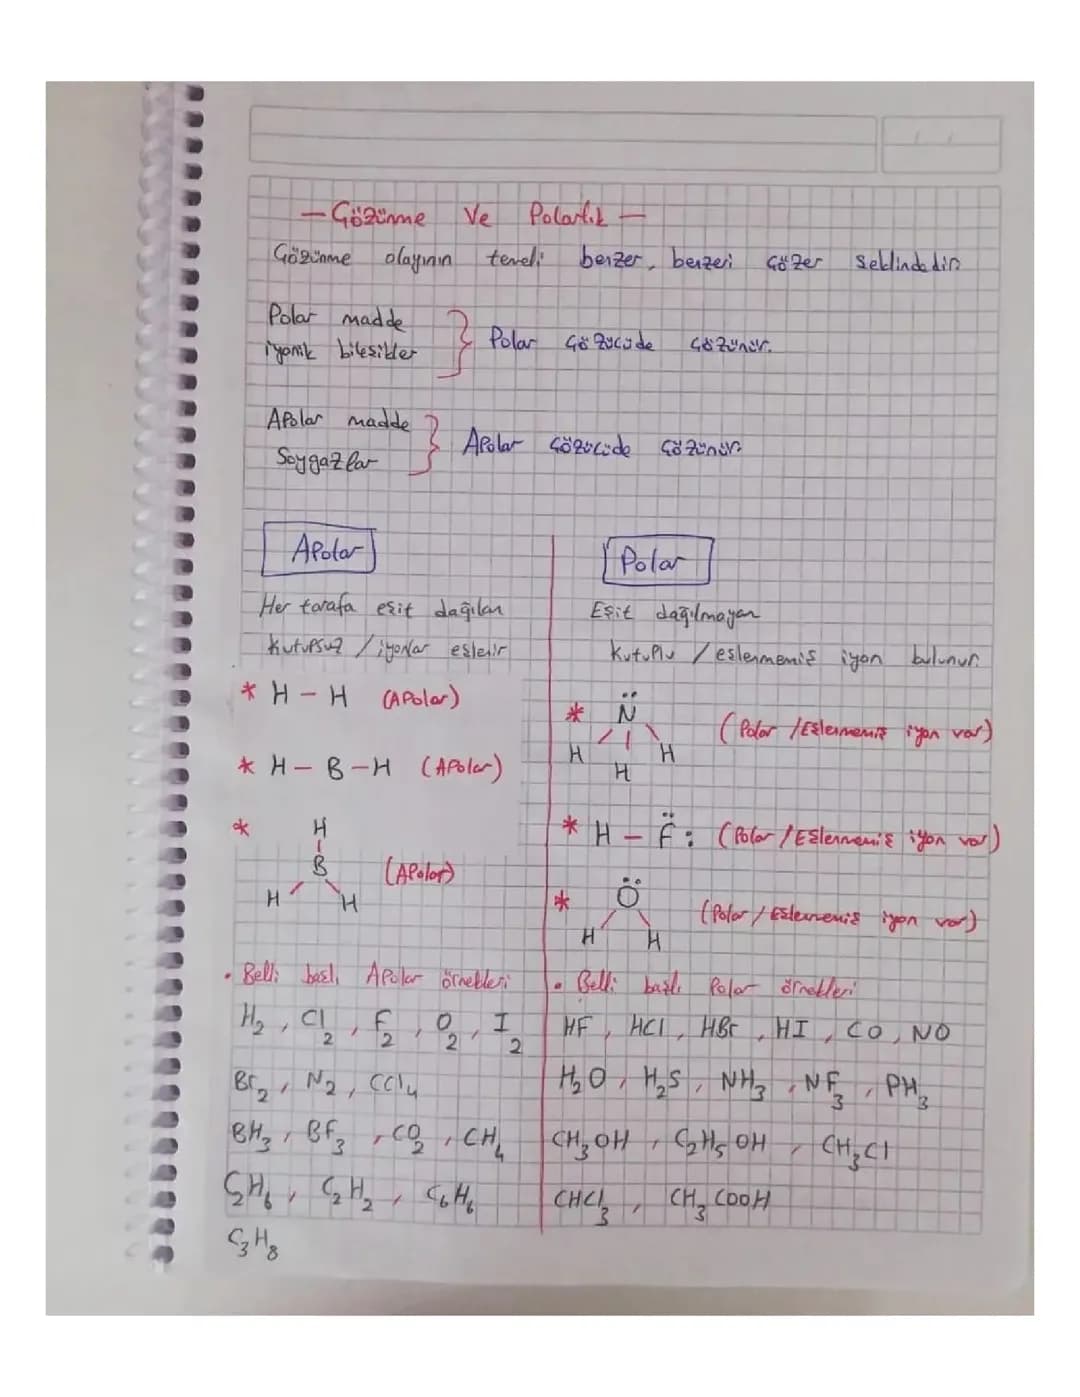 — Çözünme Ve Polarlık —
Çözünme olayının temeli benzer, benzeri çözer şeklindedir
Polar madde
iyonik bileşikler
Polar çözücüde çözünür.
Apolar madde
Soygazlar
Apolar çözücüde çözünür.
Apolar
Her tarafa eşit dağılan
kutupsuz / iyonlar eşlenir
* H – H (Apolar)
* H – B – H (Apolar)
* H
B (Apolar)
H H
• Belli başlı Apolar örnekleri
H₂, Cl₂, F₂, O₂, I₂
Br₂, N₂, CCl₄
BH₃, BF₃, CO₂, CH₄
C₂H₆, C₂H₂, C₆H₆
C₃H₈
Polar
Eşit dağılmayan
kutuplu / eşlenmemiş iyon bulunur.
* N (Polar / Eşlenmemiş iyon var)
H H
H
* H – F: (Polar / Eşlenmemiş iyon var)
* O (Polar / Eşlenmemiş iyon var)
H H
• Belli başlı Polar örnekleri
HF, HCl, HBr, HI, CO, NO
H₂O, H₂S, NH₃, NF₃, PH₃
CH₃OH, C₂H₅OH, CH₃Cl
CHCl₃, CH₃COOH